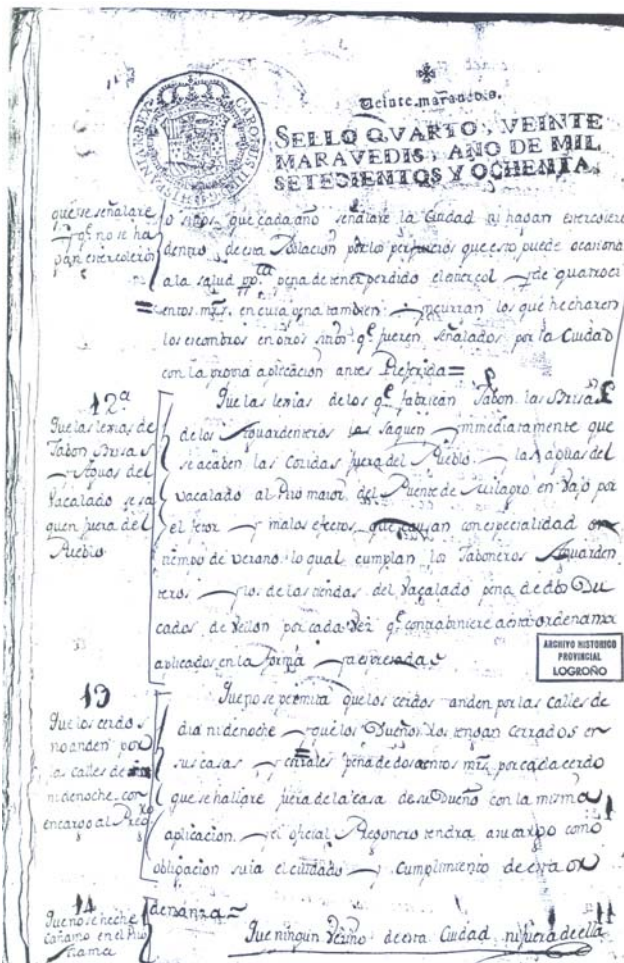 Veinte.maravedis.
SELLO QVARTO, VEINTE
MARAVEDIS, AÑO DE MIL
SETECIENTOS Y OCHENTA.
CAROLUS III
HISPANIAR. REX
que se señalare
y qe. no se ha
gan estercoleros
o sitios, que cada año señalare la Ciudad ni hagan estercolero
dentro de esta Poblacion por los perjuicios que esto puede ocasiona
a la salud ppca. pena de tener perdido el estiercol y de quatroci
entos mrs. en cuia pena tambien yncurran los que hecharen
los escombros en otros sitios qe. fueren señalados por la Ciudad
con la propia aplicacion antes Referida =
12a
Que las lexias de
Jabon Brisas
y Aguas del
Vacalado se sa
quen fuera del
Pueblo
Que las lexias de los qe. fabrican Jabon. las Brisas
de los Aguardenteros las saquen ynmediatamente que
se acaben las Cozidas fuera del Pueblo y las aguas del
vacalado al Rio maior del Puente de Milagro en vajo por
el fetor y malos efectos que causan con especialidad en
tiempo de verano lo qual cumplan los Jaboneros Aguarden
teros y los de las tiendas del Vacalado pena de dos Du
cados de Vellon por cada vez qe. contrabiniere a esta ordenanza
aplicados en la forma ya expresada
ARCHIVO HISTORICO
PROVINCIAL
LOGROÑO
13
Que los cerdos
no anden por
las calles de
ni de noche, con
encargo al Prego
Que no se permita que los cerdos anden por las calles de
dia ni de noche y que los Dueños los tengan cerrados en
sus casas y corrales pena de doscientos mrs. por cada cerdo
que se hallare fuera de la casa de su Dueño con la misma
aplicacion. y el oficial Pregonero tendra a su cargo como
obligacion suia el cuidado y cumplimiento de esta or
denanza =
14
Que no se heche
cañamo en el Rio
Que ningun Vecino de esta Ciudad ni fuera de ella